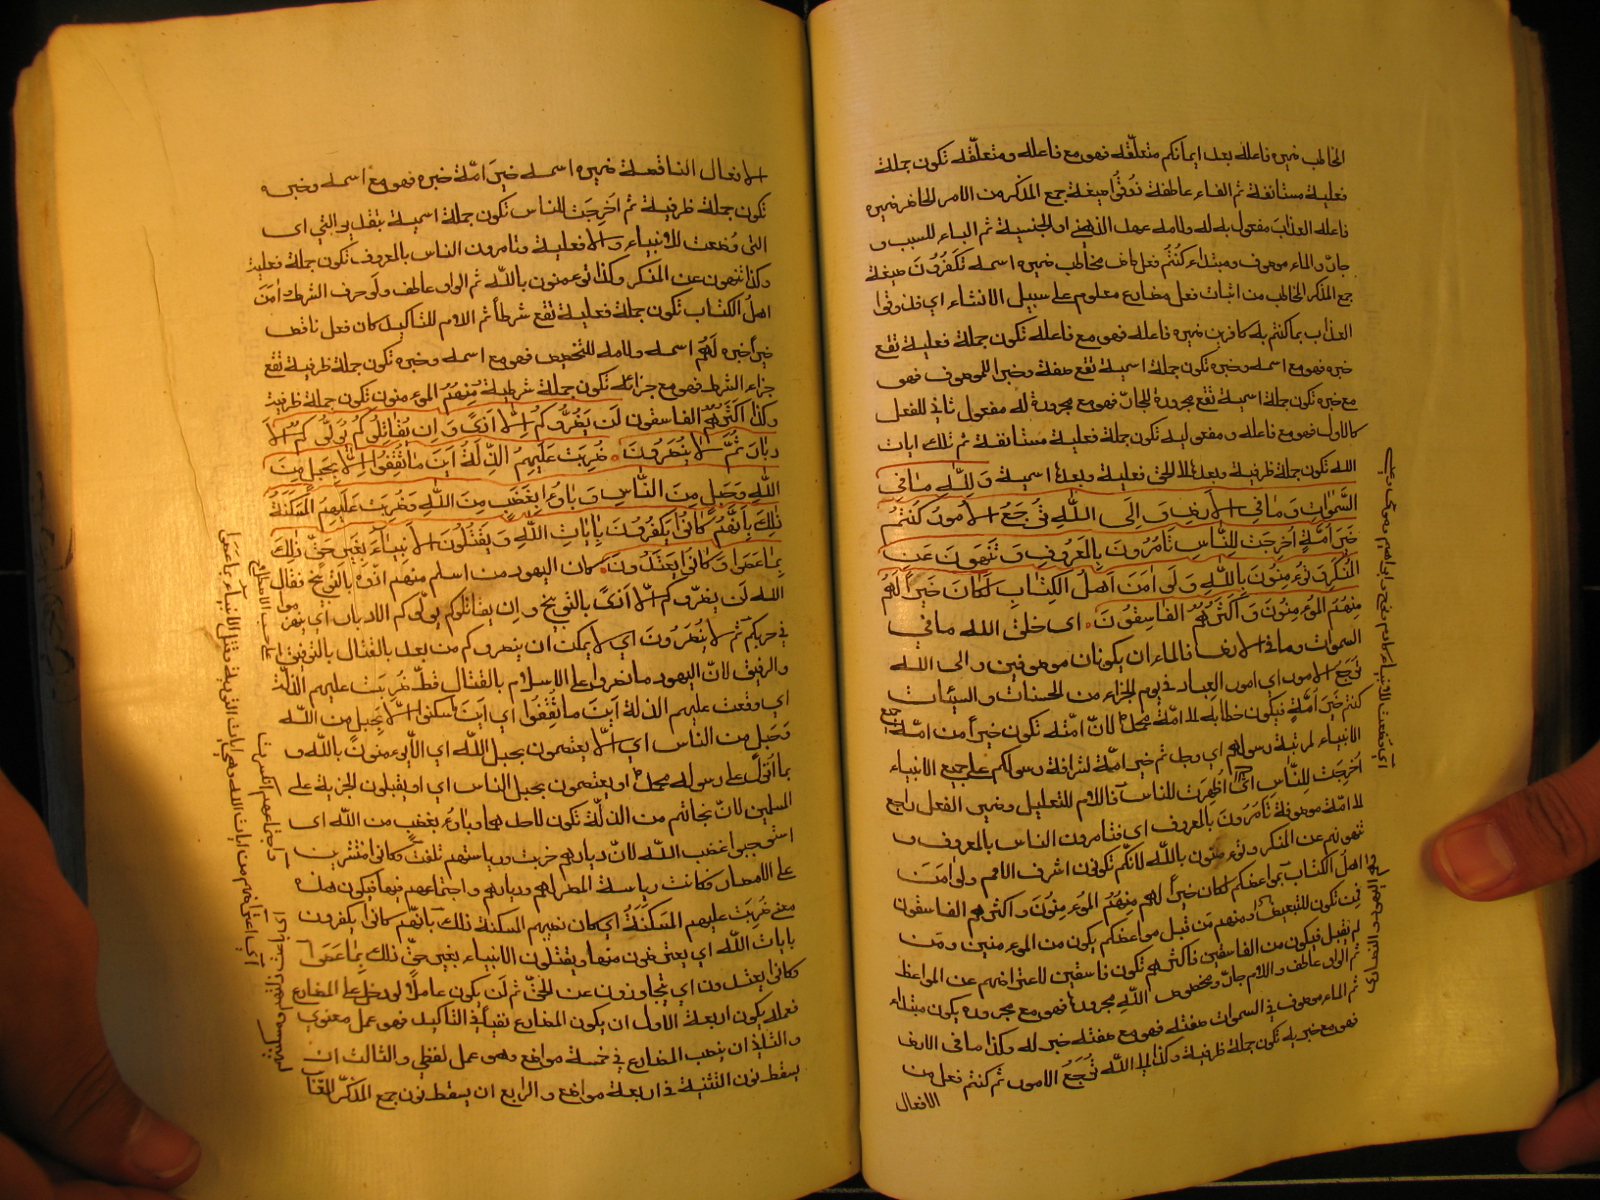 الخاطب ضميره فاعله بعد ايمانكم متعلّقه فهو مع فاعله ومتعلّقه تكون جملة
فعلية مستانفة ثم الفاء عاطفة ذوقوا صيغة جمع المذكر من الامر الحاضر ضميره
فاعله العذاب مفعول به له ولامه عهد الذهنے او الجنسية ثم الباء للسبب و
جارّ والماء موصوف ومبتداء كنتم فعل ناقص مخاطب ضميره اسمه تكفرون صيغة
جمع المذكر الخاطب من اثبات فعل مضارع معلوم على سبيل الانشاء اي فذوقوا
العذاب بما كنتم به كافرين ضميره فاعله فهو مع فاعله تكون جملة فعلية تقع
خبره فهو مع اسمه وخبره تكون جملة اسمية تقع صفة وخبرا للموصوف فهو
مع خبره تكون جملة اسمية تقع مجرورة للجارّ فهو مع مجروره له مفعول ثاني للفعل
كالاول فهو مع فاعله ومفعوليه تكون جملة فعلية مستانفة ثم تلك ايات
الله تكون جملة ظرفية وبعدها بالحق فعلية وبعدها اسمية وَلِلّٰهِ مَا فِي
السَّمٰوَاتِ وَمَا فِي الْاَرْضِ وَاِلَى اللّٰهِ تُرْجَعُ الْاُمُورُ كُنْتُمْ
خَيْرَ اُمَّةٍ اُخْرِجَتْ لِلنَّاسِ تَأْمُرُونَ بِالْمَعْرُوفِ وَتَنْهَوْنَ عَنِ
الْمُنْكَرِ وَتُؤْمِنُونَ بِاللّٰهِ وَلَوْ اٰمَنَ اَهْلُ الْكِتَابِ لَكَانَ خَيْراً لَهُمْ
مِنْهُمُ الْمُؤْمِنُونَ وَاَكْثَرُهُمُ الْفَاسِقُونَ اي خلق الله ما في
السموات وما في الارض فالماءان يكونان موصوفين والى الله
ترجع الامور اي امور العباد في يوم الجزاء من الحسنات والسيئات
كنتم خَيْرَ اُمَّةٍ فيكون خطابه لامّة محمد لانّ امّته تكون خيراً من امّة جميع
الانبياء لمرتبة رسولهم اي وجد ثم خير امّة لشرافة رسولكم على جميع الانبياء
اُخرجت للنّاس اي اُظهرت للناس فاللام للتعليل وضمير الفعل راجع
لامّة موصوفة تأمرون بالمعروف اي فتامرون الناس بالمعروف و
تنهونهم عن المنكر وتؤمنون باللّه لانّكم تكونون اشرف الامم ولو اٰمن
اهل الكتاب بمواعظكم لكان خيراً لهم منهم المؤمنون واكثرهم الفاسقون
فمن تكون للتبعيض ومنهم من قبل مواعظكم يكون من المؤمنين ومن
لم يقبل فيكون من الفاسقين فاكثرهم تكون فاسقين لاعتراضهم عن المواعظ
ثم الواو عاطف واللام جارّ ومخصوص اللّٰه مجرورها فهو مع مجروره يكون مبتداء
ثم الماء موصوف في السموات صفته فهو مع صفته خبر له وكذا ما في الارض
فهو مع خبريه تكون جملة ظرفية وكذا الى اللّٰه تُرجع الامور ثم كنتم فعل من
الافعال
الافعال الناقصة ضميره اسمه خير امّة خبره فهو مع اسمه وخبره
تكون جملة ظرفية ثم اخرجت للناس تكون جملة اسمية بتقدير التي اي
التى وُضعت للانبياء والا فعلية وتامرون الناس بالمعروف تكون جملة فعلية
وكذا تنهون عن المنكر وكذا تؤمنون باللّه ثم الواو عاطف ولو حرف الشرط اٰمن
اهل الكتاب تكون جملة فعلية تقع شرطاً ثم اللام للتاكيد كان فعل ناقص
خيراً خبره لَهُم اسمه ولامه للتخصيص فهو مع اسمه وخبره تكون جملة ظرفية تقع
جزاء الشرط فهو مع جزائه تكون جملة شرطية مِنْهُمُ المؤمنون تكون جملة ظرفية
وكذا اكثرهم الفاسقون لَنْ يَضُرُّوكُمْ اِلَّا اَذًى وَاِنْ يُقَاتِلُوكُمْ يُوَلُّوكُمُ الْاَ
دْبَارَ ثُمَّ لَا يُنْصَرُونَ ضُرِبَتْ عَلَيْهِمُ الذِّلَّةُ اَيْنَ مَا ثُقِفُوا اِلَّا بِحَبْلٍ مِنَ
اللّٰهِ وَحَبْلٍ مِنَ النَّاسِ وَبَاؤُ بِغَضَبٍ مِنَ اللّٰهِ وَضُرِبَتْ عَلَيْهِمُ الْمَسْكَنَةُ
ذٰلِكَ بِاَنَّهُمْ كَانُوا يَكْفُرُونَ بِاٰيَاتِ اللّٰهِ وَيَقْتُلُونَ الْاَنْبِيَاءَ بِغَيْرِ حَقٍّ ذٰلِكَ
بِمَا عَصَوْا وَكَانُوا يَعْتَدُونَ كان اليهود من اسلم منهم اذوه بالتوبيخ فقال
الله لن يضرّوكم الّا اذىً بالتوبيخ وان يقاتلوكم يولّوكم الادبار اي ينهزموا
في حربكم ثم لا يُنصرون اي لا يمكن ان ينصروكم من بعد بالقتال بالتوفيق
والرفيق لانّ اليهود ما نصروا على الاسلام بالقتال قطّ ضُربت عليهم الذلّة
اي وقعت عليهم الذلة اين ما ثُقِفُوا اي اين يسكنوا الّا بحبل من اللّٰه
وحبل من الناس اي الّا يعتصمون بحبل اللّٰه اي الّا يؤمنون باللّٰه و
بما اُنزل على رسوله محمد او يعتصمون بحبل الناس اي او يقبلون الجزية على
المسلمين لانّ نجاتهم من الذلّة تكون لاحدهما وباؤ بغضب من اللّٰه اي
استوجبوا غضب اللّٰه لانّ ديارهم خربت ورياستهم تلفت وكانوا منتشرين
على الامصار فكانت رياسة المصر لهم وديارهم واجتماعهم فيها فيكون هذه
معنے ضُربت عليهم المَسكَنَةُ اي كان نصيبهم المسكنة ذلك بانّهم كانوا يكفرون
بايات اللّٰه اي يعترضون منها ويقتلون الانبياء بغير حقّ ذلك بما عَصَوا
وكانوا يعتدون اي يتجاوزون عن الحقّ ثم لَن يكون عاملاً لو دخل على المضارع
فعمله يكون اربعة الاول ان يكون المضارع نفياً في التاكيد فهو عمل معنوي
والثاني ان ينصب المضارع في خمسة مواضع وهو عمل لفظي والثالث ان
يسقط نون التثنية في اربعة مواضع والرابع ان يسقط نون جمع المذكّر الغائب